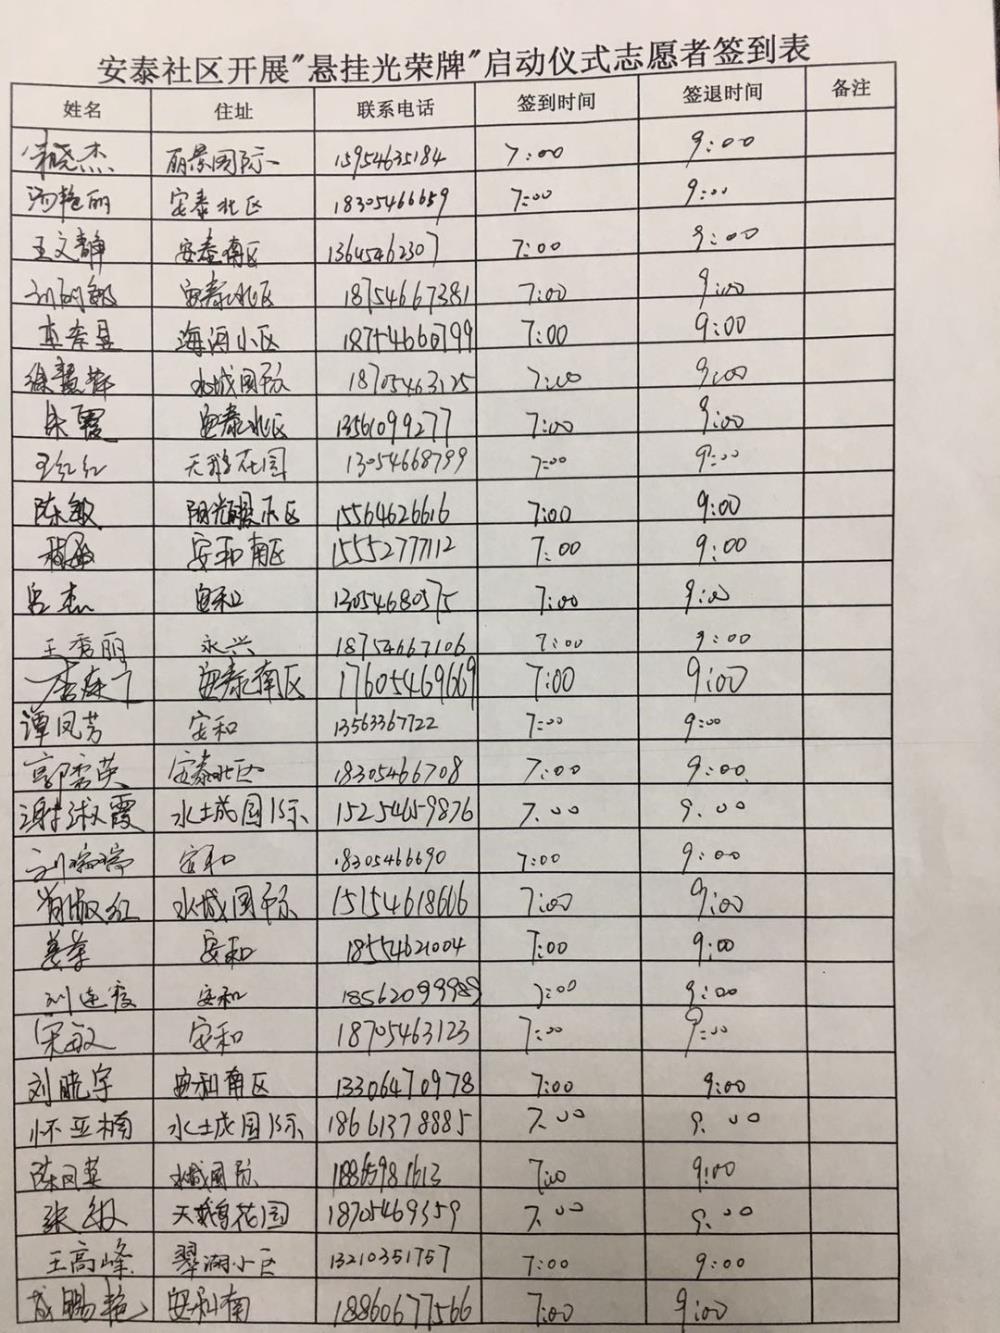 安泰社区开展"悬挂光荣牌"启动仪式志愿者签到表
姓名 住址 联系电话 签到时间 签退时间 备注
宋晓杰 丽景国际 15954635184 7:00 9:00
汤艳丽 安泰北区 18305466659 7:00 9:00
王文静 安泰南区 13645462307 7:00 9:00
安泰北区 18754667381 7:00 9:00
海河小区 18754660799 7:00 9:00
徐慧萍 水城国际 18705463125 7:00 9:00
朱霞 安泰北区 13561099277 7:00 9:00
王红红 天鹅花园 13054668799 7:00 9:00
陈敏 阳光丽景小区 15564626616 7:00 9:00
安和南区 15552777112 7:00 9:00
吕杰 安和 13054680575 7:00 9:00
王秀丽 永兴 18754667106 7:00 9:00
安泰南区 17605469669 7:00 9:00
谭凤芳 安和 13563367722 7:00 9:00
郭秀英 安泰北区 18305466708 7:00 9:00
谢淑霞 水城国际 15254659876 7:00 9:00
刘婷婷 安和 18305466690 7:00 9:00
水城国际 15154618606 7:00 9:00
姜苹 安和 18554621004 7:00 9:00
刘连霞 安和 18562099989 7:00 9:00
宋敏 安和 18705463123 7:00 9:00
刘晓宇 安和南区 13306470978 7:00 9:00
怀亚楠 水城国际 18661378885 7:00 9:00
陈同英 水城国际 18865981613 7:00 9:00
张敏 天鹅花园 18705469359 7:00 9:00
王高峰 翠湖小区 13210351757 7:00 9:00
安和南 18860677566 7:00 9:00